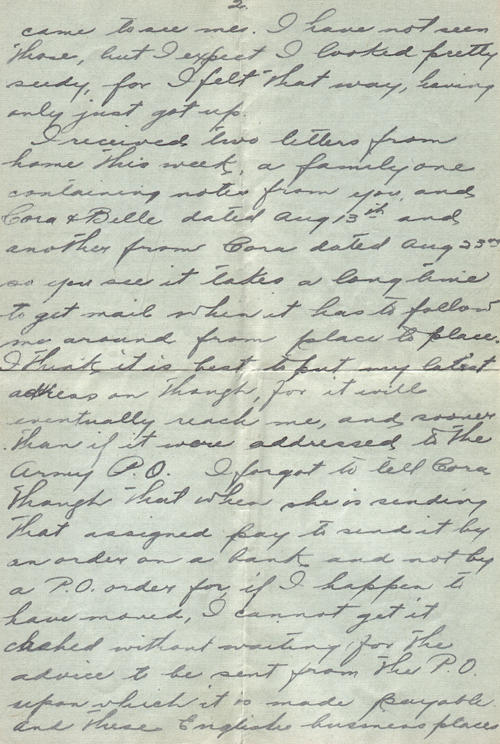 2.
came to see me. I have not seen
those, but I expect I looked pretty
seedy, for I felt that way, having
only just got up.
I received two letters from
home this week, a family one
containing notes from you, and
Cora & Belle dated Aug 13th and
another from Cora dated Aug 23rd
so you see it takes a long time
to get mail when it has to follow
me around from place to place.
I think it is best to put my latest
address on though, for it will
eventually reach me, and sooner
than if it were addressed to the
Army P.O. I forgot to tell Cora
though that when she is sending
that assigned pay to send it by
an order on a bank and not by
a P.O. order for if I happen to
have moved, I cannot get it
cashed without waiting for the
advice to be sent from the P.O.
upon which it is made payable.
and these English business places